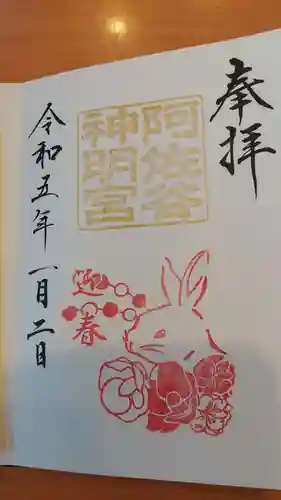 奉拝
阿佐谷
神明宮
迎春
令和五年一月二日